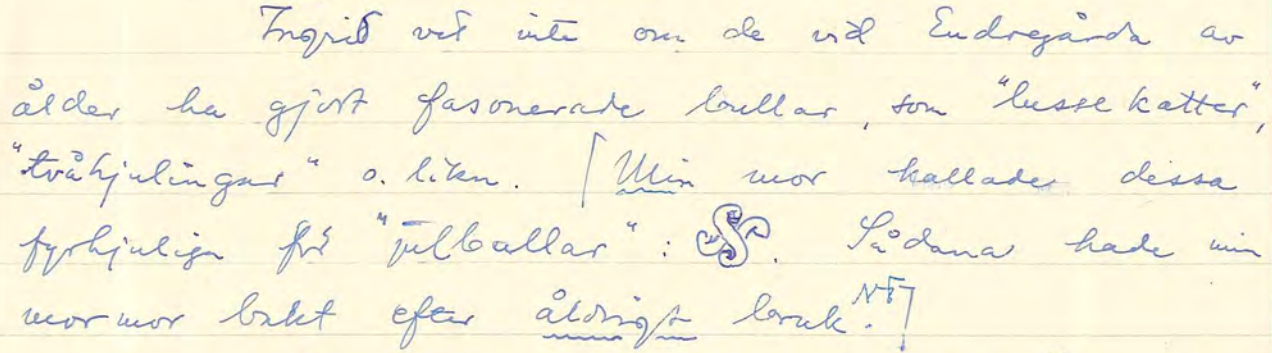 Ingrid vet inte om de vid Endregårda av
ålder ha gjort fasonerade bullar, som "lussekatter",
"tvåhjulingar" o. likn. [Min mor kallade dessa
fyrhjuliga för "julballar": . Sådana hade min
mormor bakt efter åldrigt bruk.]